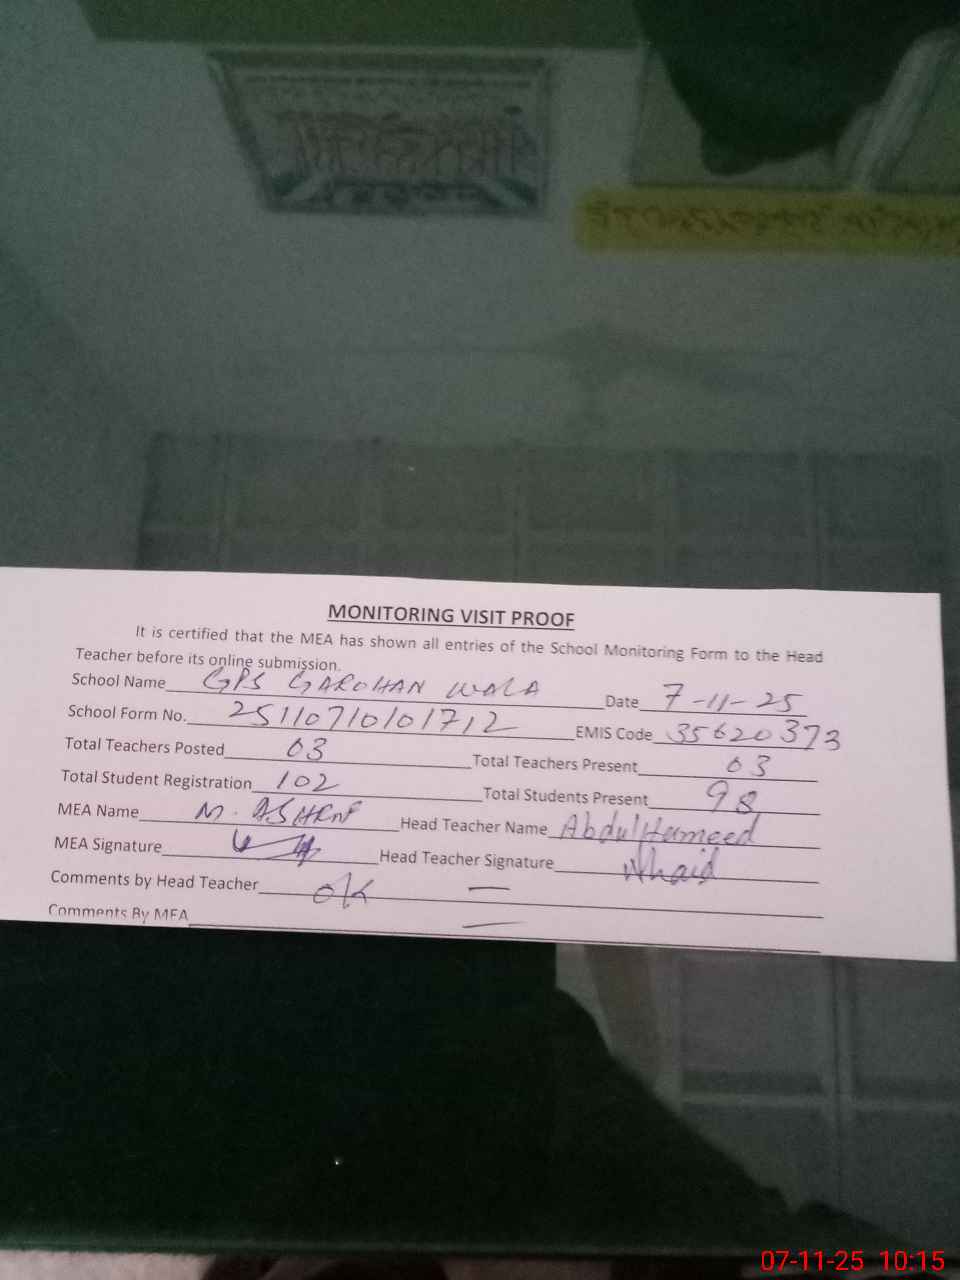 MONITORING VISIT PROOF
It is certified that the MEA has shown all entries of the School Monitoring Form to the Head
Teacher before its online submission.
School Name GPS GAROHAN WALA Date 7-11-25
School Form No. 25110710101712 EMIS Code 35620373
Total Teachers Posted 03 Total Teachers Present 03
Total Student Registration 102 Total Students Present 98
MEA Name M. ASHRAF Head Teacher Name Abdul Hameed
MEA Signature Head Teacher Signature
Comments by Head Teacher ok —
Comments By MEA —
07-11-25 10:15